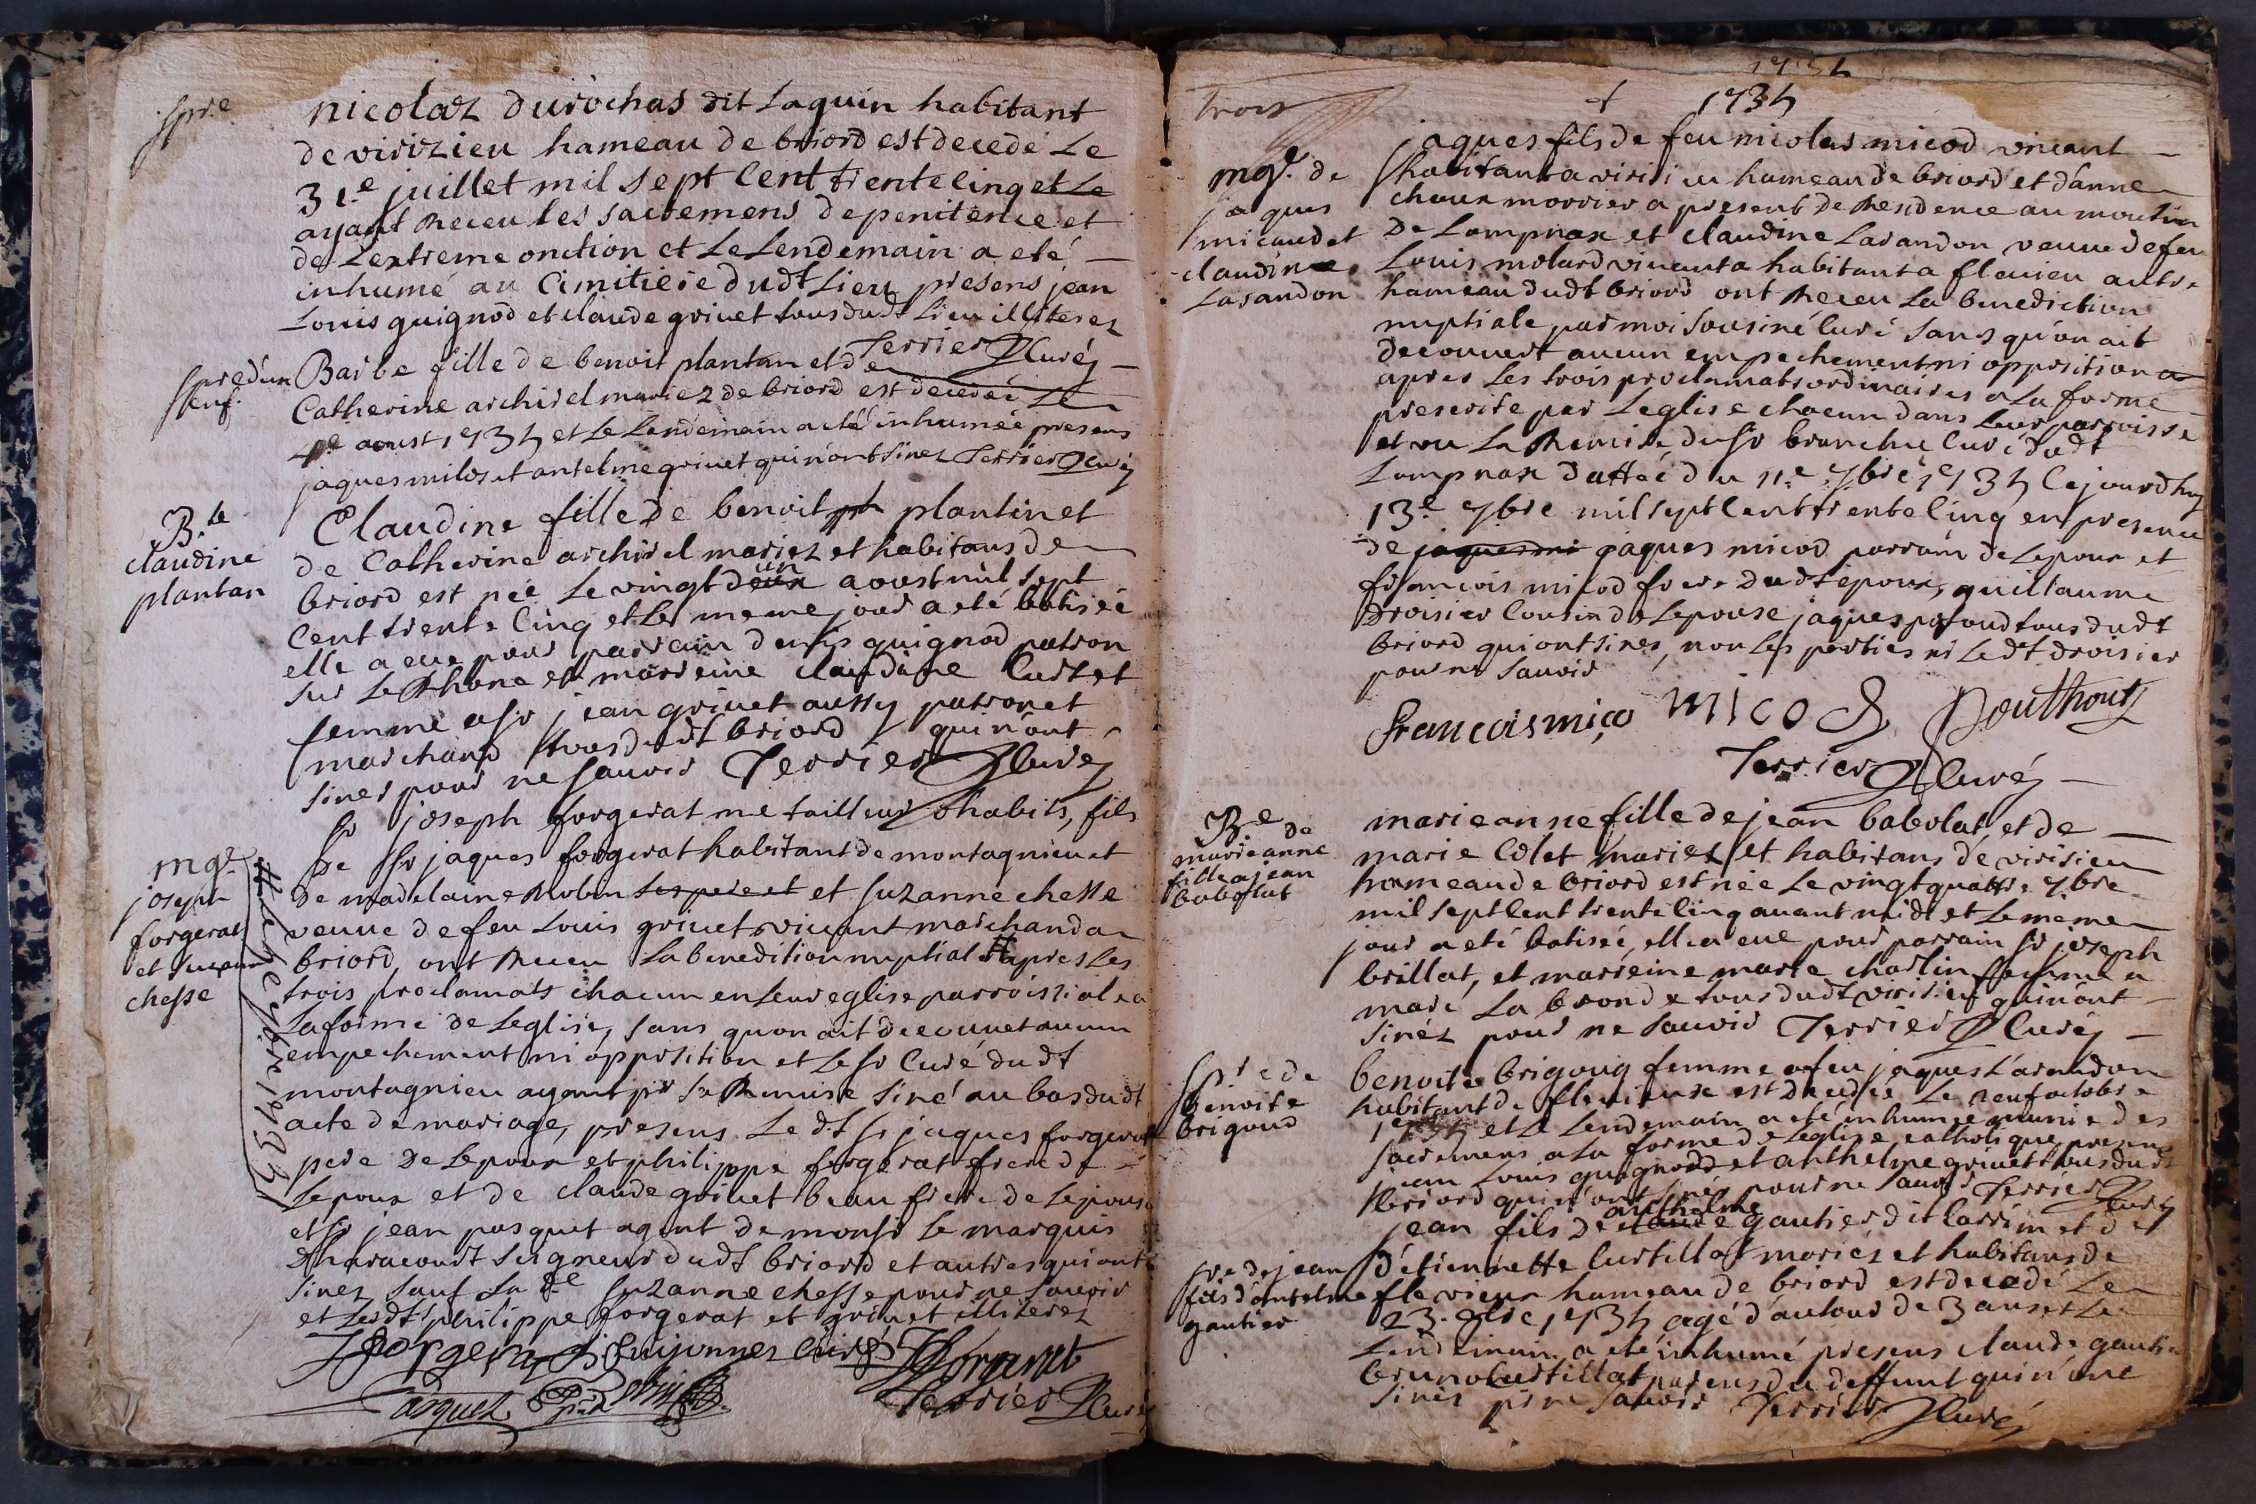 spre
nicolaz durochas dit Laquin habitant
de virizieu hameau de briord est decedé Le
31.e juillet mil sept Cent trente cinq et Le
ayant Receu les sacremens de penitence et
de Lextreme onction et Le Lendemain a eté
inhumé au Cimitiere dudt Lieu presens jean
Louis guignod et claude grivet tous dudt Lieu illiterez
Terrier Curé
spre d'un enf.
Barbe fille de benoit plantan et de
Catherine archirel mariez de briord est decedeé Le
aoust 1735 et Le Lendemain a eté inhumeé presens
jaques milos et antelme grivet qui n'ont sinez Terrier Curé
B.te
claudine
plantan
Claudine fille de benoit plantin et
de Catherine archirel mariez et habitans de
briord est née Le vingt un aoust mil sept
Cent trente Cinq et Le meme jour a eté batiseé
elle a eue pour parrain denis guignod patron
sur Le Rhone et marreine claudine Curtet
femme a sr jean grivet aussy patron et
marchand tous dudt briord qui n'ont
sinez pour ne savoir Terrier Curé
mge.
joseph
forgerat
et suzanne
chesse
sr joseph forgerat me tailleur d'habits, fils
de sr jaques forgerat habitant de montagnieu et
de madelaine Robin ses pere et et suzanne chesse
veuve de feu Louis grivet vivant marchand a
briord, ont Receu La benedition nuptial # apres Les
trois proclamats chacun en Leur eglise parroissiale a
La forme de Leglise, sans quon ait decouvet aucun
empechement ni opposition et Le sr Curé dudt
montagnieu ayant pr sa Remise siné au bas dudt
acte de mariage, presens Le dt sr jaques forgerat
pere de Lepoux et philippe forgerat frere de
Lepoux et de claude grivet beau frere de Lepouse
et sr jean pasquet agent de monsr Le marquis
d'haracourt seigneur dudt briord et autres qui ont
sinez sauf La de suzanne chesse pour ne savoir
et Lesdt philippe forgerat et grivet illiterez
# Le 7bre 1735
J forgerat Guigonnes Curé J forgerat
Pasquet Terrier Curé
trois
1735
1735
mge. de
jaques
micaud et
claudine
Larandon
jaques fils de feu nicolas micod vivant
habitant a virisieu hameau de briord et d'anne
chaux morrier a present de Residence au moulin
De Lompnax et claudine Larandon veuve de feu
Louis molard vivant a habitant a flevieu autre
hameau dudt briord ont Receu La benediction
nuptiale par moi sousiné Curé sans qu'on ait
decouvert aucun empechement ni opposition a
apres Les trois proclamats ordinaires a La forme
prescrite par Leglise chacun dans Leur parroisse
et vu La Remise du sr branche Curé dudt
Lompnax datteé du 11.e 7bre 1735 Cejourdhuy
13.e 7bre mil sept Cent trente Cinq en presence
de jaques mi jaques micod parrain de Lepoux et
francois micod frere dudt epoux, guillaume
Droisier Cousin de Lepouse jaques pofoud tous dudt
briord qui ont sinez, non Les parties ni Ledt droisier
pour ne savoir
francois mico MICOD
Terrier Curé
B.e de
marieanne
fille a jean
babolat
marieanne fille de jean babolat, et de
marie Colet mariez et habitans de virisieu
hameau de briord est née Le vingt quatre 7bre
mil sept Cent trente Cinq avant midi et Le meme
jour a eté batiseé, elle a eue pour parrain sr joseph
brillat, et marreine marie charlin femme a
marc La bronde tous dudt virisieu qui n'ont
sinéz pour ne savoir Terrier Curé
spre de
benoite
brigoud
benoite brigoug femme a feu jaques Larandon
habitant de flevieux est decedée Le neuf octobre
1735 et Le Lendemain a eté inhumée munie des
sacremens a La forme de Leglise catholique presens
jean Louis guignod et anthelme grivet tous dudt
briord qui n'ont sinez pour ne savoir Terrier Curé
spre de jean
fils d'antelme
gautier
jean fils de claude anthelme gautier dit Larrim et de
d'etiennette Curtillat mariés et habitans de
flevieux hameau de briord est decedé Le
23. 9bre 1735 agé d'autour de 3 ans et Le
Lendemain a eté inhumé presens claude gautier
bruno Curtillat parens du deffunt qui n'ont
sinés pr ne savoir Terrier Curé